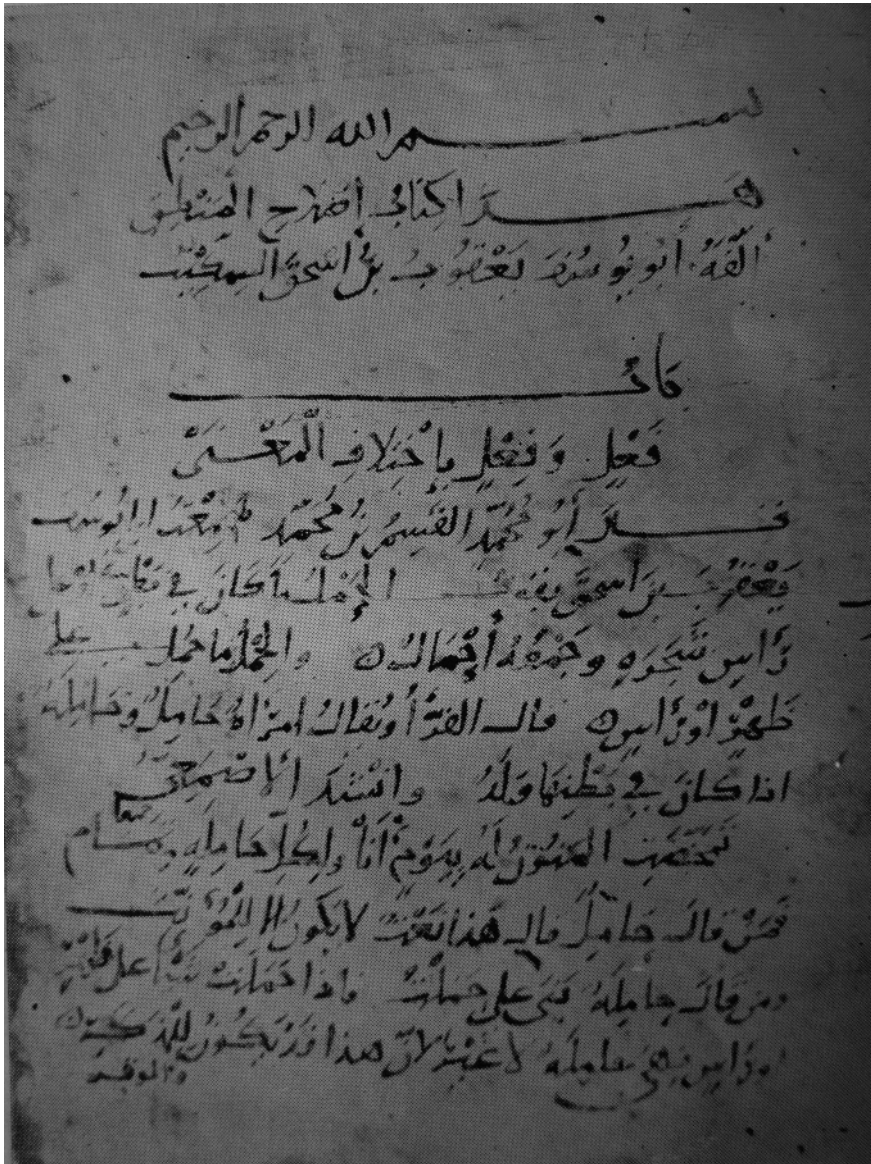 بسم الله الرحمن الرحيم
هذا كتاب إصلاح المنطق
ألّفه أبو يوسف يعقوب بن اسحق السكيت
باب
فَعْلٍ وَفِعْلٍ بِاخْتِلافِ الْمَعْنَى
قال أبو محمّد القسم بن محمّد سمعت ابا يوسف
يعقوب بن اسحق يقول الحَمْل ما كان في بطن أو على
رأس شجره وجمعه أحمال ه والحِمْل ما حمل على
ظهرٍ او رأسٍ ه قال الفرّا ويقال امرأة حامل وحاملة
اذا كان في بطنها ولد وانشد الاصمعيّ
تمخّضت المنون له بيوم أنا ولكل حاملة تمام
فمن قال حامل قال هذا نعت لا يكون الا للمؤنّث
ومن قال حاملة بنى على حملت فاذا حملت شيأ على ظهر
او رأس فهي حاملة لا غير لانّ هذا قد يكون للمذكر ه